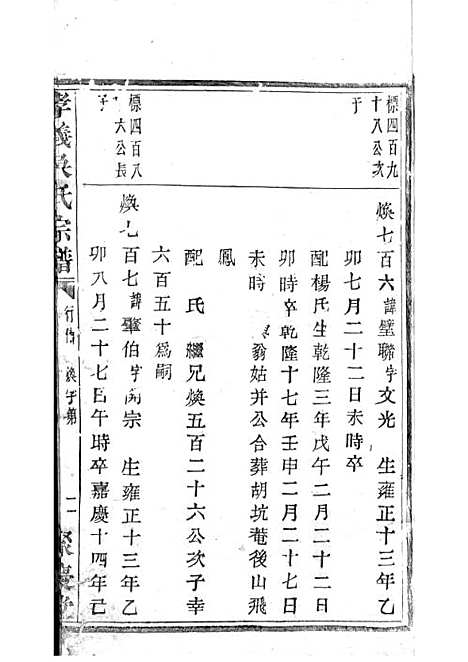 標四百九
十八公次
子
煥七百六諱璧聯字文光 生雍正十三年乙
卯七月二十二日未時卒
配楊氏生乾隆三年戊午二月二十二日
卯時卒乾隆十七年壬申二月二十七日
未時 翁姑并公合葬胡坑菴後山飛
鳳
配 氏 繼兄煥五百二十六公次子幸
六百五十為嗣
標四百八
十六公長
子
煥七百七諱肇伯字 宗 生雍正十三年乙
卯八月二十七日午時卒嘉慶十四年己
孝義吳氏宗譜
行 煥字第
聚慶堂